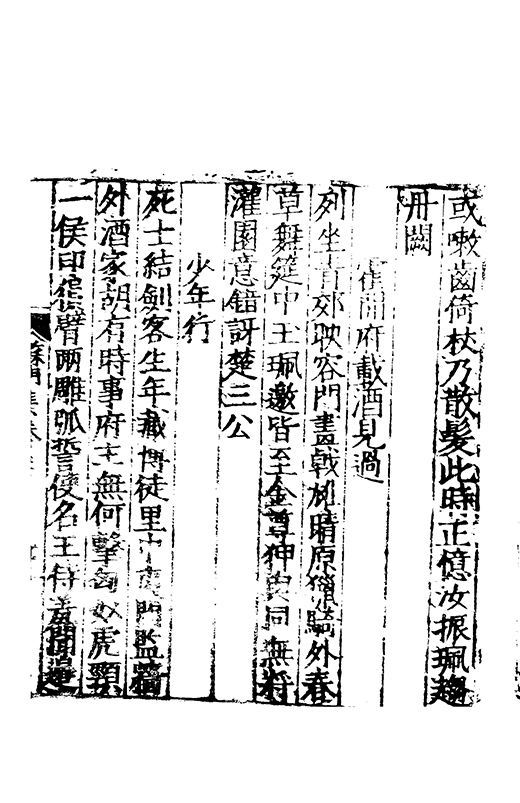 或嗽齒倚杖乃散髮此時正憶汝振珮趨
丹闕
崔開府載酒見過
列坐青郊映容門畫戟旎晴原獵騎外春
草舞筵中玉珮邀皆至金尊狎同無將
灌園意錯訝楚三公
少年行
死士結劍客生年藏博徒里中門監
外酒家胡有時事府主無何擊匈奴虎頸
一侯印猿臂兩雕弧誓使名王待
蘇門集卷